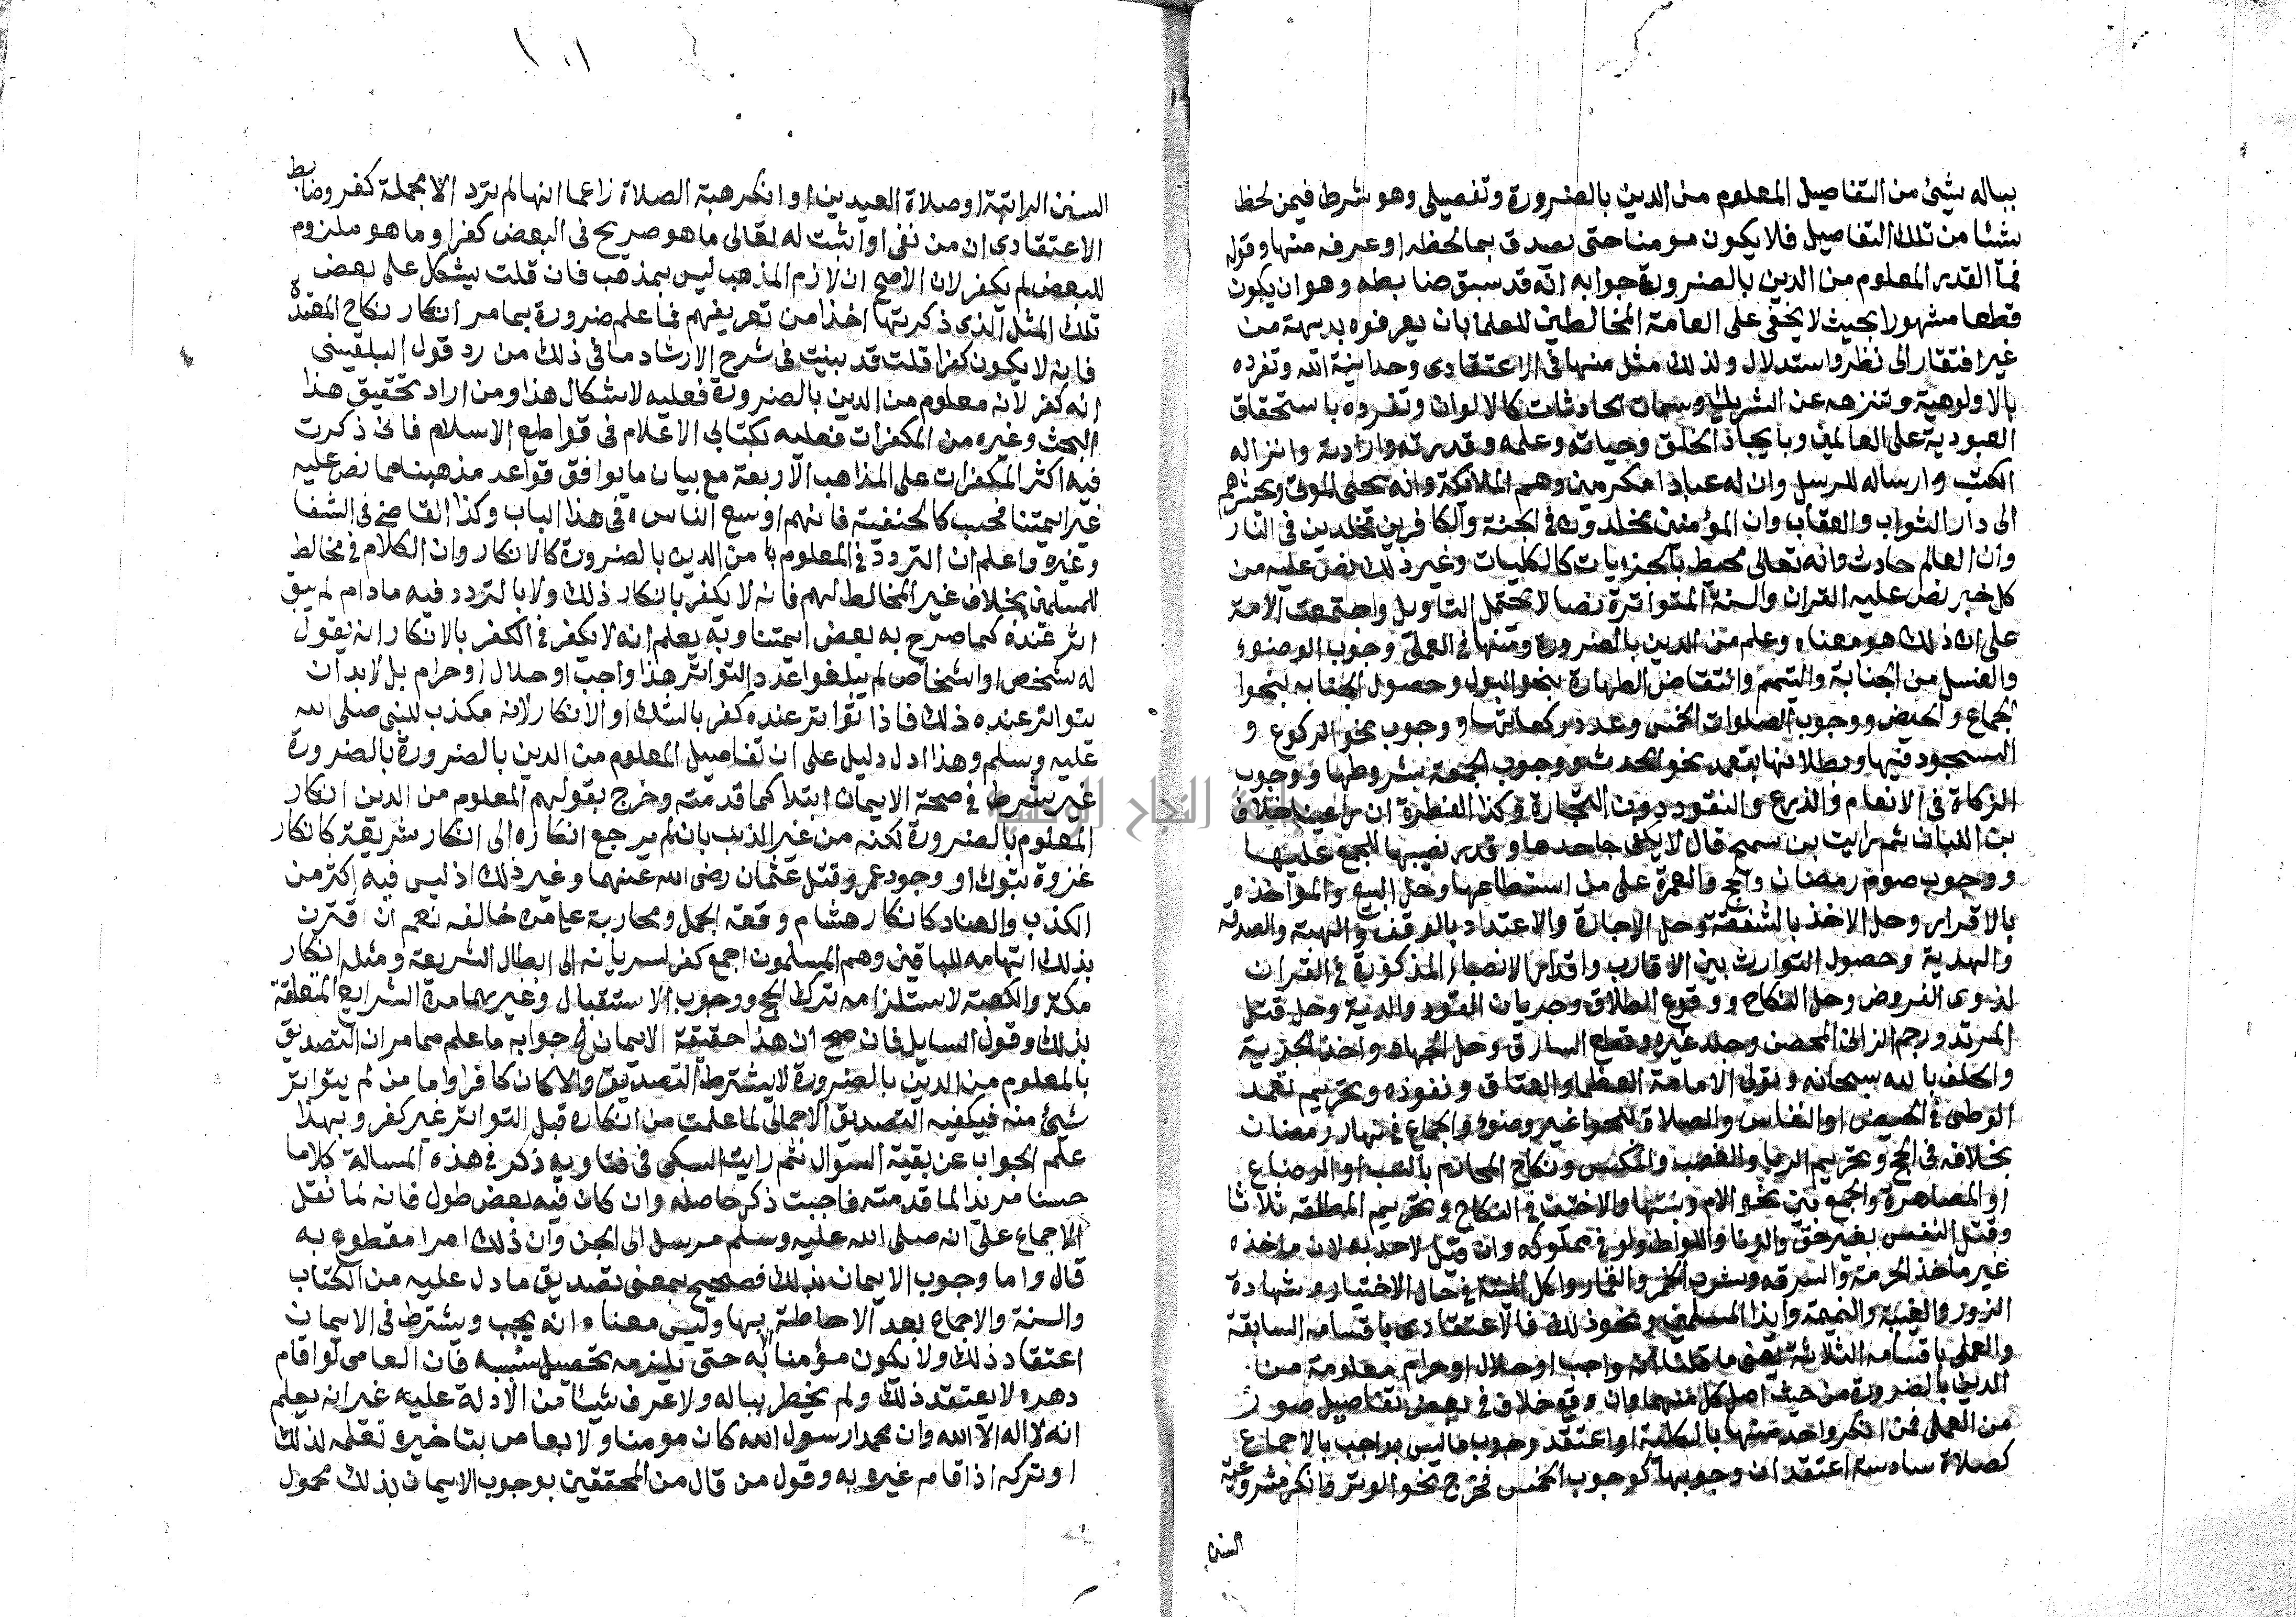 بباله شيئ من التفاصيل المعلوم من الدين بالضرورة وتفصيلى وهو شرط فيمن لحظ
شئا من تلك التفاصيل فلا يكون مومنا حتى يصدق بما لحظه اوعرفه منها وقوله
فما القدر المعلوم من الدين بالضرورة جوابه انه قد سبق ضابطه وهو ان يكون
قطعا مشهورا بحيث لا يخفى على العامة المخالطين للعلما بان يعرفوه بديهة من
غير افتقار الى نظر واستدلال ولذلك مثل منها فى الاعتقادى وحدانية الله وتفرده
بالاولوهية وتنزهه عن الشريك وسمات الحادثات كالالوان وتفرده باستحقاق
العبودية على العالمين وبايجاد الخلق وحياته وعلمه وقدرته وارادته وانزاله
الكتب وارساله للرسل وان له عبادا مكرمين وهم الملائكة وانه يحى الموتى ويحشرهم
الى دار الثواب والعقاب وان المؤمنين يخلدون فى الجنة والكافرين مخلدين فى النار
وان العالم حادث وانه تعالى محيط بالجزيات كالكليات وغير ذلك نص عليه من
كل خبر نص عليه القران والسنة المتواترة نصا لا يحتمل التاويل واجتمعت الامة
على ان ذلك هو معناه وعلم من الدين بالضرورة ومنها فى العملى وجوب الوضوء
والغسل من الجنابة والتيمم وانتقاض الطهارة بنحو البول وحصول الجنابه بنحوا
الجماع والحيض ووجوب الصلوات الخمس وعدد ركعاتها ووجوب نحو الركوع و
السجود فيها وبطلانها بتعمد نحو الحدث ووجوب الجمعة بشروطها ووجوب
الزكاة فى الانعام والزرع والنقود دون التجارة وكذا الفطرة ان راعينا خلاف
بن اللبان ثم رايت بن سميح قال لا يكفى جاحدها وقدر نصيبها المجمع عليها
ووجوب صوم رمضان والحج والعمرة على من استطاعها وحل البيع والمواخذه
بالاقرار وحل الاخذ بالشفعة وحل الاجارة والاعتداد بالوقف والهبة والصدقه
والهدية وحصول التوارث بين الاقارب واقدار الانصبا المذكورة فى القران
لذوى الفروض وحل النكاح ووقوع الطلاق وجريان القود والدية وحل قتل
المرتد ورجم الزانى المحصن وجلد غيره وقطع السارق وحل الجهاد واخذ الجزية
والحلف بالله سبحانه وتولى الامامة العظما والعتاق ونفوذه وتحريم تعمد
الوطى فى الحيض او النفاس والصلاة بنحوا غير وضوء والجماع فى نهار رمضان
بخلافه فى الحج وتحريم الربا والغصب والمكس ونكاح المحارم بالنسب او الرضاع
او المصاهرة والجمع بين نحو الام وبنتها والاختين فى النكاح وتحريم المطلقه ثلاثا
وقتل النفس بغير حق والزنا واللواط ولو فى مملوكه وان قيل لاحد به لان ماخذه
غير ماخذ الحرمة والسرقه وشرب الخمر والقمار واكل الميتة فى حال الاختيار وشهادة
الزور والغيبة والنميمة وايذا المسلمين ونحو ذلك فالاعتقادى باقسامه السابقة
والعملى باقسامه الثلاثة يعنى ما قلنا انه واجب اوحلال اوحرام معلومة من
الدين بالضرورة من حيث اصل كل منهما وان وقع خلاف فى بعض تفاصيل صور
من العملى فمن انكر واحد منها بالكلية او اعتقد وجوب ما ليس بواجب بالاجماع
كصلاة سادسة اعتقد ان وجوبها كوجوب الخمس فخرج نحو الوتر وانكر مشروعية
السنن
١٠١
السنن الراتبة او صلاة العيدين او انكر هبة الصلاة زاعما انها لم ترد الا مجملة كفر وضابط
الاعتقادى ان من نفى او اثبت له تعالى ما هو صريح فى البعض كفرا وما هو ملزوم
للبعض لم يكفر لان الاصح ان لازم المذهب ليس بمذهب فان قلت يشكل على بعض
تلك المثل الذى ذكرتها اخذا من تعريفهم فما علم ضرورة بما مر انكار نكاح المعتدة
فانه لا يكون كفرا قلت قد بينت فى شرح الارشاد ما فى ذلك من رد قول البلقينى
انه كفر لانه معلوم من الدين بالضرورة فعليه لا شكال هذا ومن اراد تحقيق هذا
البحث وغيره من المكفرات فعليه بكتابى الاعلام فى قواطع الاسلام فانى ذكرت
فيه اكثر المكفرات على المذاهب الاربعة مع بيان ما يوافق قواعد مذهبنا مما نص عليه
غير ايمتنا فحسب كالحنفية فانهم اوسع الناس فى هذا الباب وكذا القاضى فى الشفا
وغيره واعلم ان التردد فى المعلوم با من الدين بالضرورة كالانكار وان الكلام فى مخالط
للمسلمين بخلاف غير المخالط لهم فانه لا يكفر بانكار ذلك ولا بالتردد فيه مادام لم يبق
اثر عنده كما صرح به بعض ايمتنا وبه يعلم انه لا يكفر فى الكفر بالانكار ان يقول
له شخص او اشخاص لم يبلغوا عدد التواتر هذا واجب او حلال او حرام بل لابد ان
يتواتر عنده ذلك فاذا تواتر عنده كفر بالشك او الانكار لانه مكذب للنبى صلى الله
عليه وسلم وهذا ادل دليل على ان تفاصيل المعلوم من الدين بالضرورة بالضرورة
غير شرط فى صحة الايمان ابتلا كما قدمته وخرج بقولهم المعلوم من الدين انكار
المعلوم بالضرورة لكنه من غير الدين بان لم يرجع انكاره الى انكار شريعة كانكار
غزوة تبوك او وجود عمر وقتل عثمان رضى الله عنهما وغير ذلك اذ ليس فيه اكثر من
الكذب والعناد كانكار هشام وقعة الجمل ومحاربة على من خالفه نعم ان اقترن
بذلك اتهامه للباقين وهم المسلمون اجمع كفر لسريانه الى ابطال الشريعة ومثله انكار
مكة والكعبة لاستلزامه ترك الحج ووجوب الاستقبال وغيرهما من الشرايع المتعلقة
بذلك وقول السايل فان صح ان هذا حقيقة الايمان الخ جوابه ما علم مما مر ان التصديق
بالمعلوم من الدين بالضرورة لا يشترط التصديق والا كان كافرا واما من لم يتواتر
شيئ منه فيكفيه التصديق الاجمالى لما علمت من انكاره قبل التواتر غير كفر وبهذا
علم الجواب عن بقية السوال ثم رايت السبكى فى فتاويه ذكر فى هذه المسالة كلاما
حسنا مريدا لما قدمته فاحببت ذكر حاصله وان كان فيه بعض طول فانه لما نقل
الاجماع على انه صلى الله عليه وسلم مرسل الى الجن وان ذلك امرا مقطوع به
قال واما وجوب الايمان بذلك فصحيح بمعنى تصديق ما دل عليه من الكتاب
والسنة والاجماع بعد الاحاطة بها وليس معناه انه يجب ويشترط فى الايمان
اعتقاد ذلك ولا يكون مؤمنا به حتى يلزمه تحصيل سببه فان العامى لو اقام
دهره لا يعتقد ذلك ولم يخطر بباله ولا عرف شيئا من الادلة عليه غير انه يعلم
انه لا اله الا الله وان محمدا رسول الله كان مومنا ولا بعاص بتاخيره تعلمه لذلك
اوتركه اذا قام غيره به وقول من قال من المحققين بوجوب الايمان بذلك محمول
جامعة النجاح الوطنية